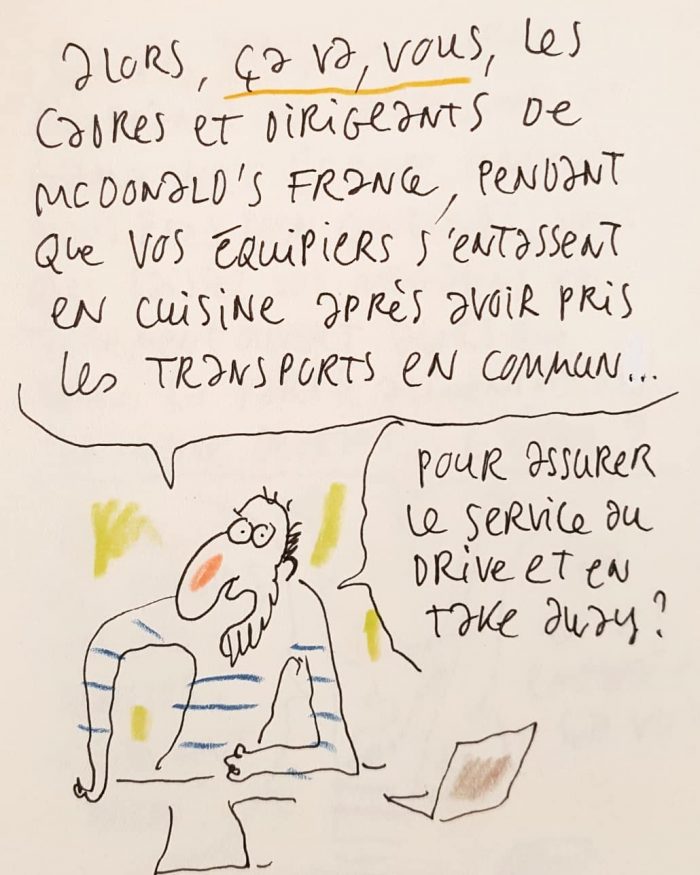 Alors, ça va, vous, les
cadres et dirigeants de
McDonald's France, pendant
que vos équipiers s'entassent
en cuisine après avoir pris
les transports en commun...
pour assurer
le service au
drive et en
take away?